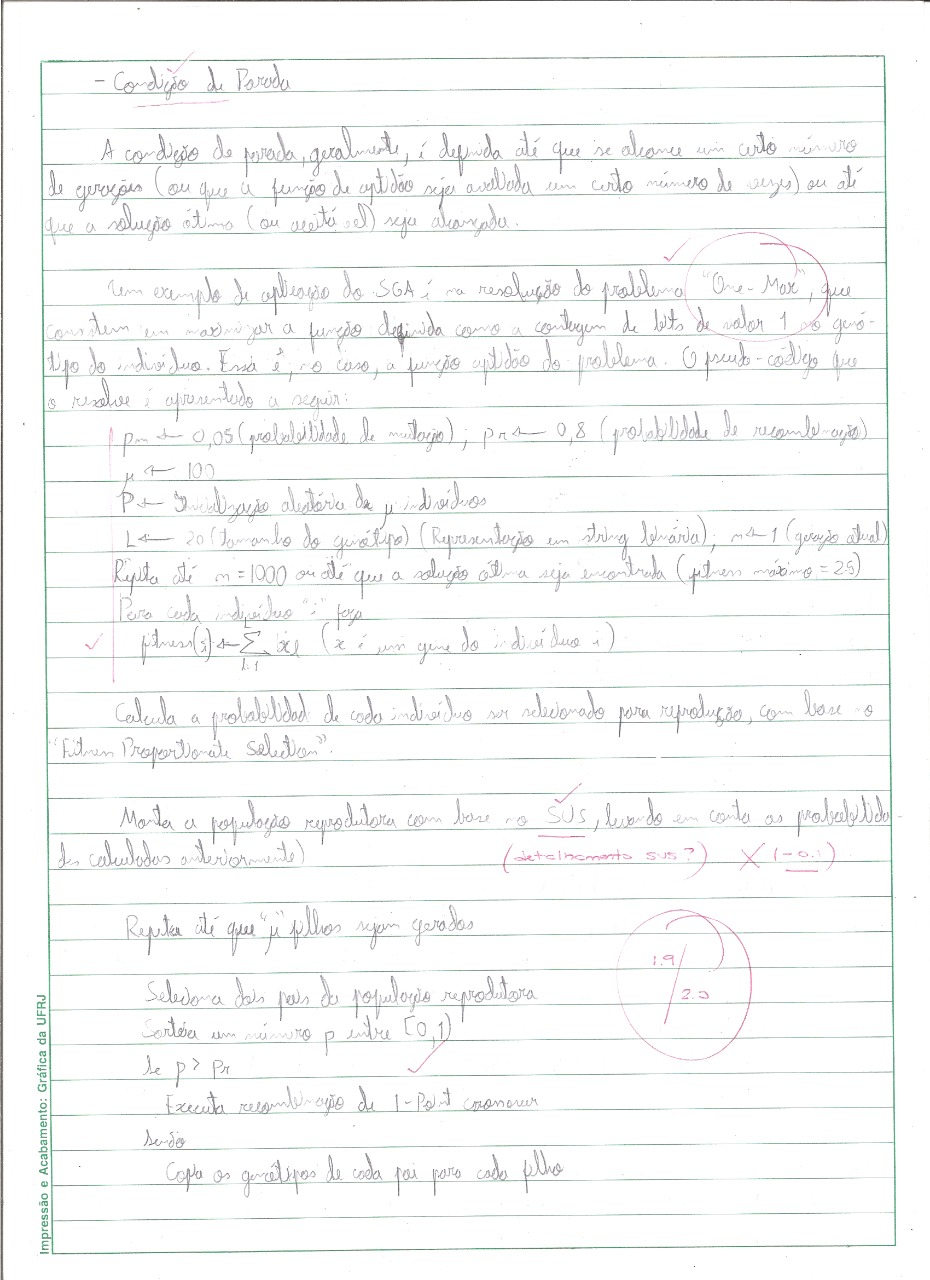 - Condição de Parada
A condição de parada, geralmente, é definida até que se alcance um certo número
de gerações (ou que a função de aptidão seja avaliada um certo número de vezes) ou até
que a solução ótima (ou aceitável) seja alcançada.
Um exemplo de aplicação do SGA é na resolução do problema "One-Max", que
consitem em maximizar a função definida como a contagem de bits de valor 1 no genó-
tipo do indivíduo. Essa é, no caso, a função aptidão do problema. O pseudo-código que
o resolve é apresentado a seguir:
pm ← 0,05 (probabilidade de mutação); pr ← 0,8 (probabilidade de recombinação)
μ ← 100
P ← Inicialização aleatória de μ indivíduos
L ← 20 (tamanho do genótipo) (Representação em string binária); n ← 1 (geração atual)
Repita até n = 1000 ou até que a solução ótima seja encontrada (fitness máximo = 25)
Para cada indivíduo "i" faça
fitness(i) ← ∑ l=1 L xl (x é um gene do indivíduo i)
Calcula a probabilidade de cada indivíduo ser selecionado para reprodução, com base no
"Fitness Proportionate Selection".
Monta a população reprodutora com base no SUS, levando em conta as probabilida-
des calculadas anteriormente)
(detalhamento SUS?) X (-0.1)
Repita até que "μ" filhos sejam gerados
1.9/2.0
Seleciona dois pais da população reprodutora
Sortéia um número p entre [0,1)
Se p > Pr
Executa recombinação de 1-Point crossover
senão
Copia os genótipos de cada pai para cada filho
Impressão e Acabamento: Gráfica da UFRJ